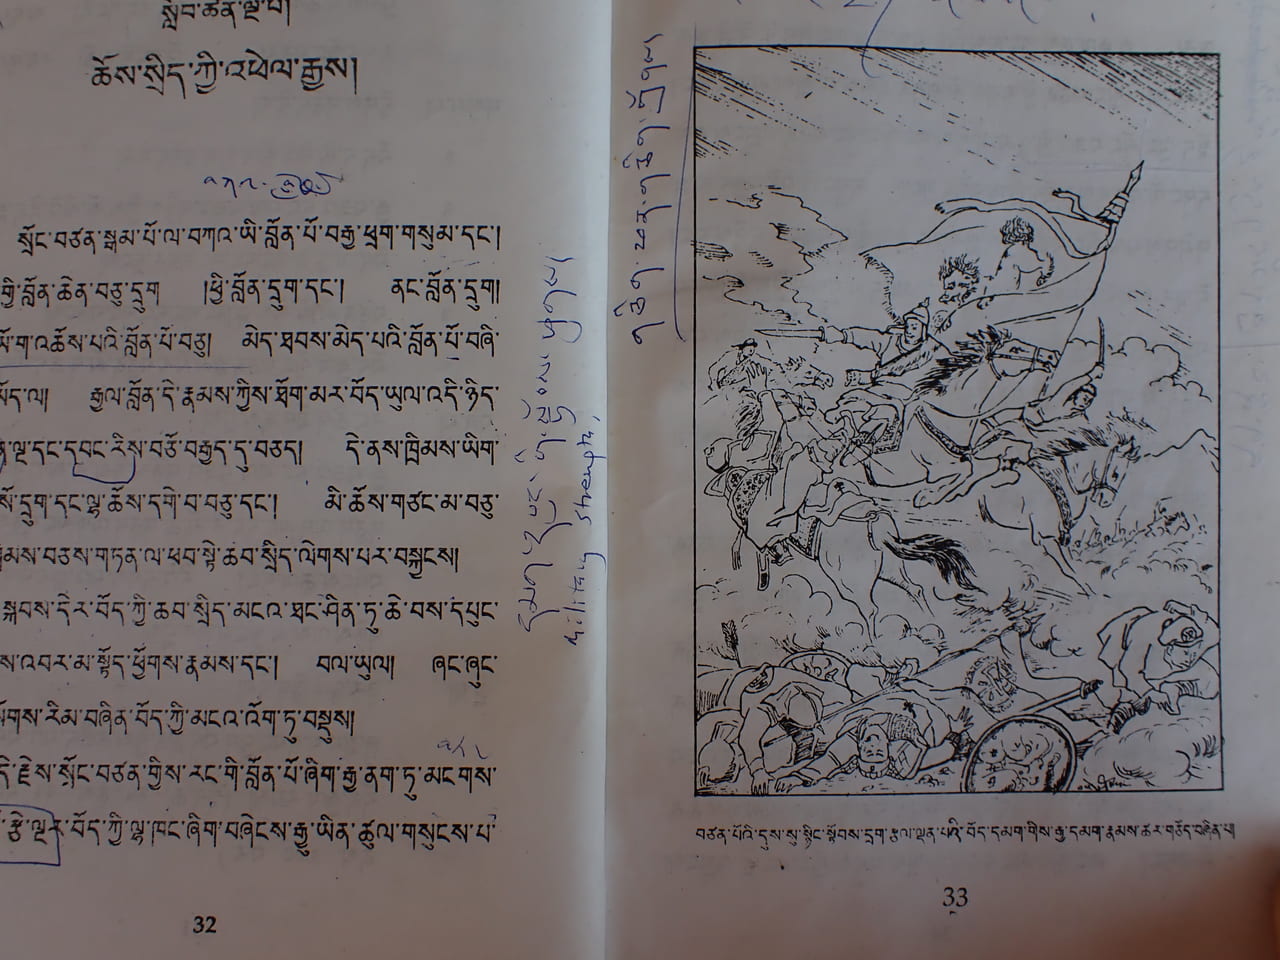 སློབ་ཚན་ལྔ་པ།
ཆོས་སྲིད་ཀྱི་འཕེལ་རྒྱས།
སྲོང་བཙན་སྒམ་པོ་ལ་བཀའ་ཡི་བློན་པོ་བརྒྱ་ཕྲག་གསུམ་དང་།
གྱི་བློན་ཆེན་བཅུ་དྲུག །ཕྱི་བློན་དྲུག་དང་། ནང་བློན་དྲུག།
འཆོས་པའི་བློན་པོ་བཅུ། མེད་ཐབས་མེད་པའི་བློན་པོ་བཞི་
ལ། རྒྱལ་བློན་དེ་རྣམས་ཀྱིས་ཐོག་མར་བོད་ཡུལ་འདི་ཉིད་
ལྔ་དང་དབང་རིས་བཅོ་བརྒྱད་དུ་བཅད། དེ་ནས་ཁྲིམས་ཡིག་
དྲུག་དང་ལྷ་ཆོས་དགེ་བ་བཅུ་དང་། མི་ཆོས་གཙང་མ་བཅུ་
བཅས་གཏན་ལ་ཕབ་སྟེ་ཆབ་སྲིད་ལེགས་པར་བསྐྱངས།
སྐབས་དེར་བོད་ཀྱི་ཆབ་སྲིད་མངའ་ཐང་ཤིན་ཏུ་ཆེ་བས་དཔུང་
འབར་མ་སྟོད་ཕྱོགས་རྣམས་དང་། བལ་ཡུལ། ཞང་ཞུང་
རིམ་བཞིན་བོད་ཀྱི་མངའ་འོག་ཏུ་བསྡུས།
དེ་རྗེས་སྲོང་བཙན་གྱིས་རང་གི་བློན་པོ་ཞིག་རྒྱ་ནག་ཏུ་མངགས་
རྩེ་ལྔར་བོད་ཀྱི་ལྷ་ཁང་ཞིག་བཞེངས་རྒྱུ་ཡིན་ཚུལ་གསུངས་པ་
32
military strength
བཙན་པོའི་དུས་སུ་སྙིང་སྟོབས་དྲག་རྩལ་ལྡན་པའི་བོད་དམག་གིས་རྒྱ་དམག་རྣམས་ཚར་གཅོད་བཞིན་པ།
33